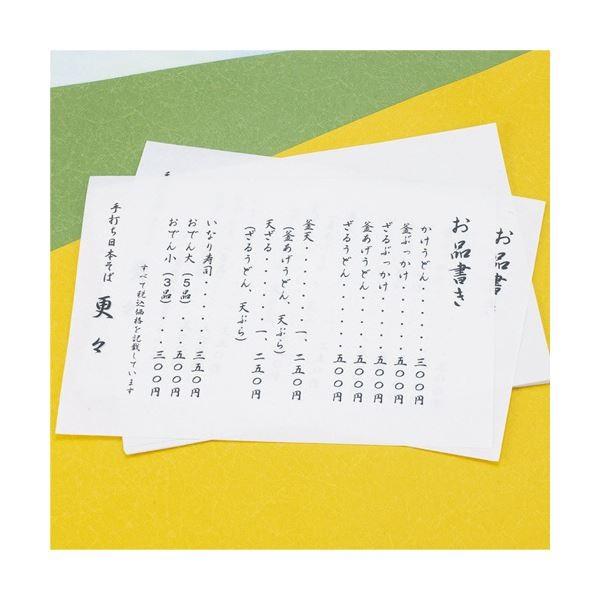 お品書き
かけうどん・・・・・・三〇〇円
釜ぶっかけ・・・・・・五〇〇円
ざるぶっかけ・・・・・五〇〇円
釜あげうどん・・・・・五〇〇円
ざるうどん・・・・・・五〇〇円
釜天・・・・・・一、二五〇円
(釜あげうどん、天ぷら)
天ざる・・・・・一、二五〇円
(ざるうどん、天ぷら)
いなり寿司・・・・・・三五〇円
おでん大(5品)・・・五〇〇円
おでん小(3品)・・・三〇〇円
すべて税込価格を記載しています
手打ち日本そば 更々
お品書